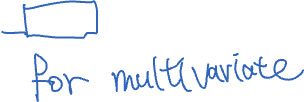 for multivariate